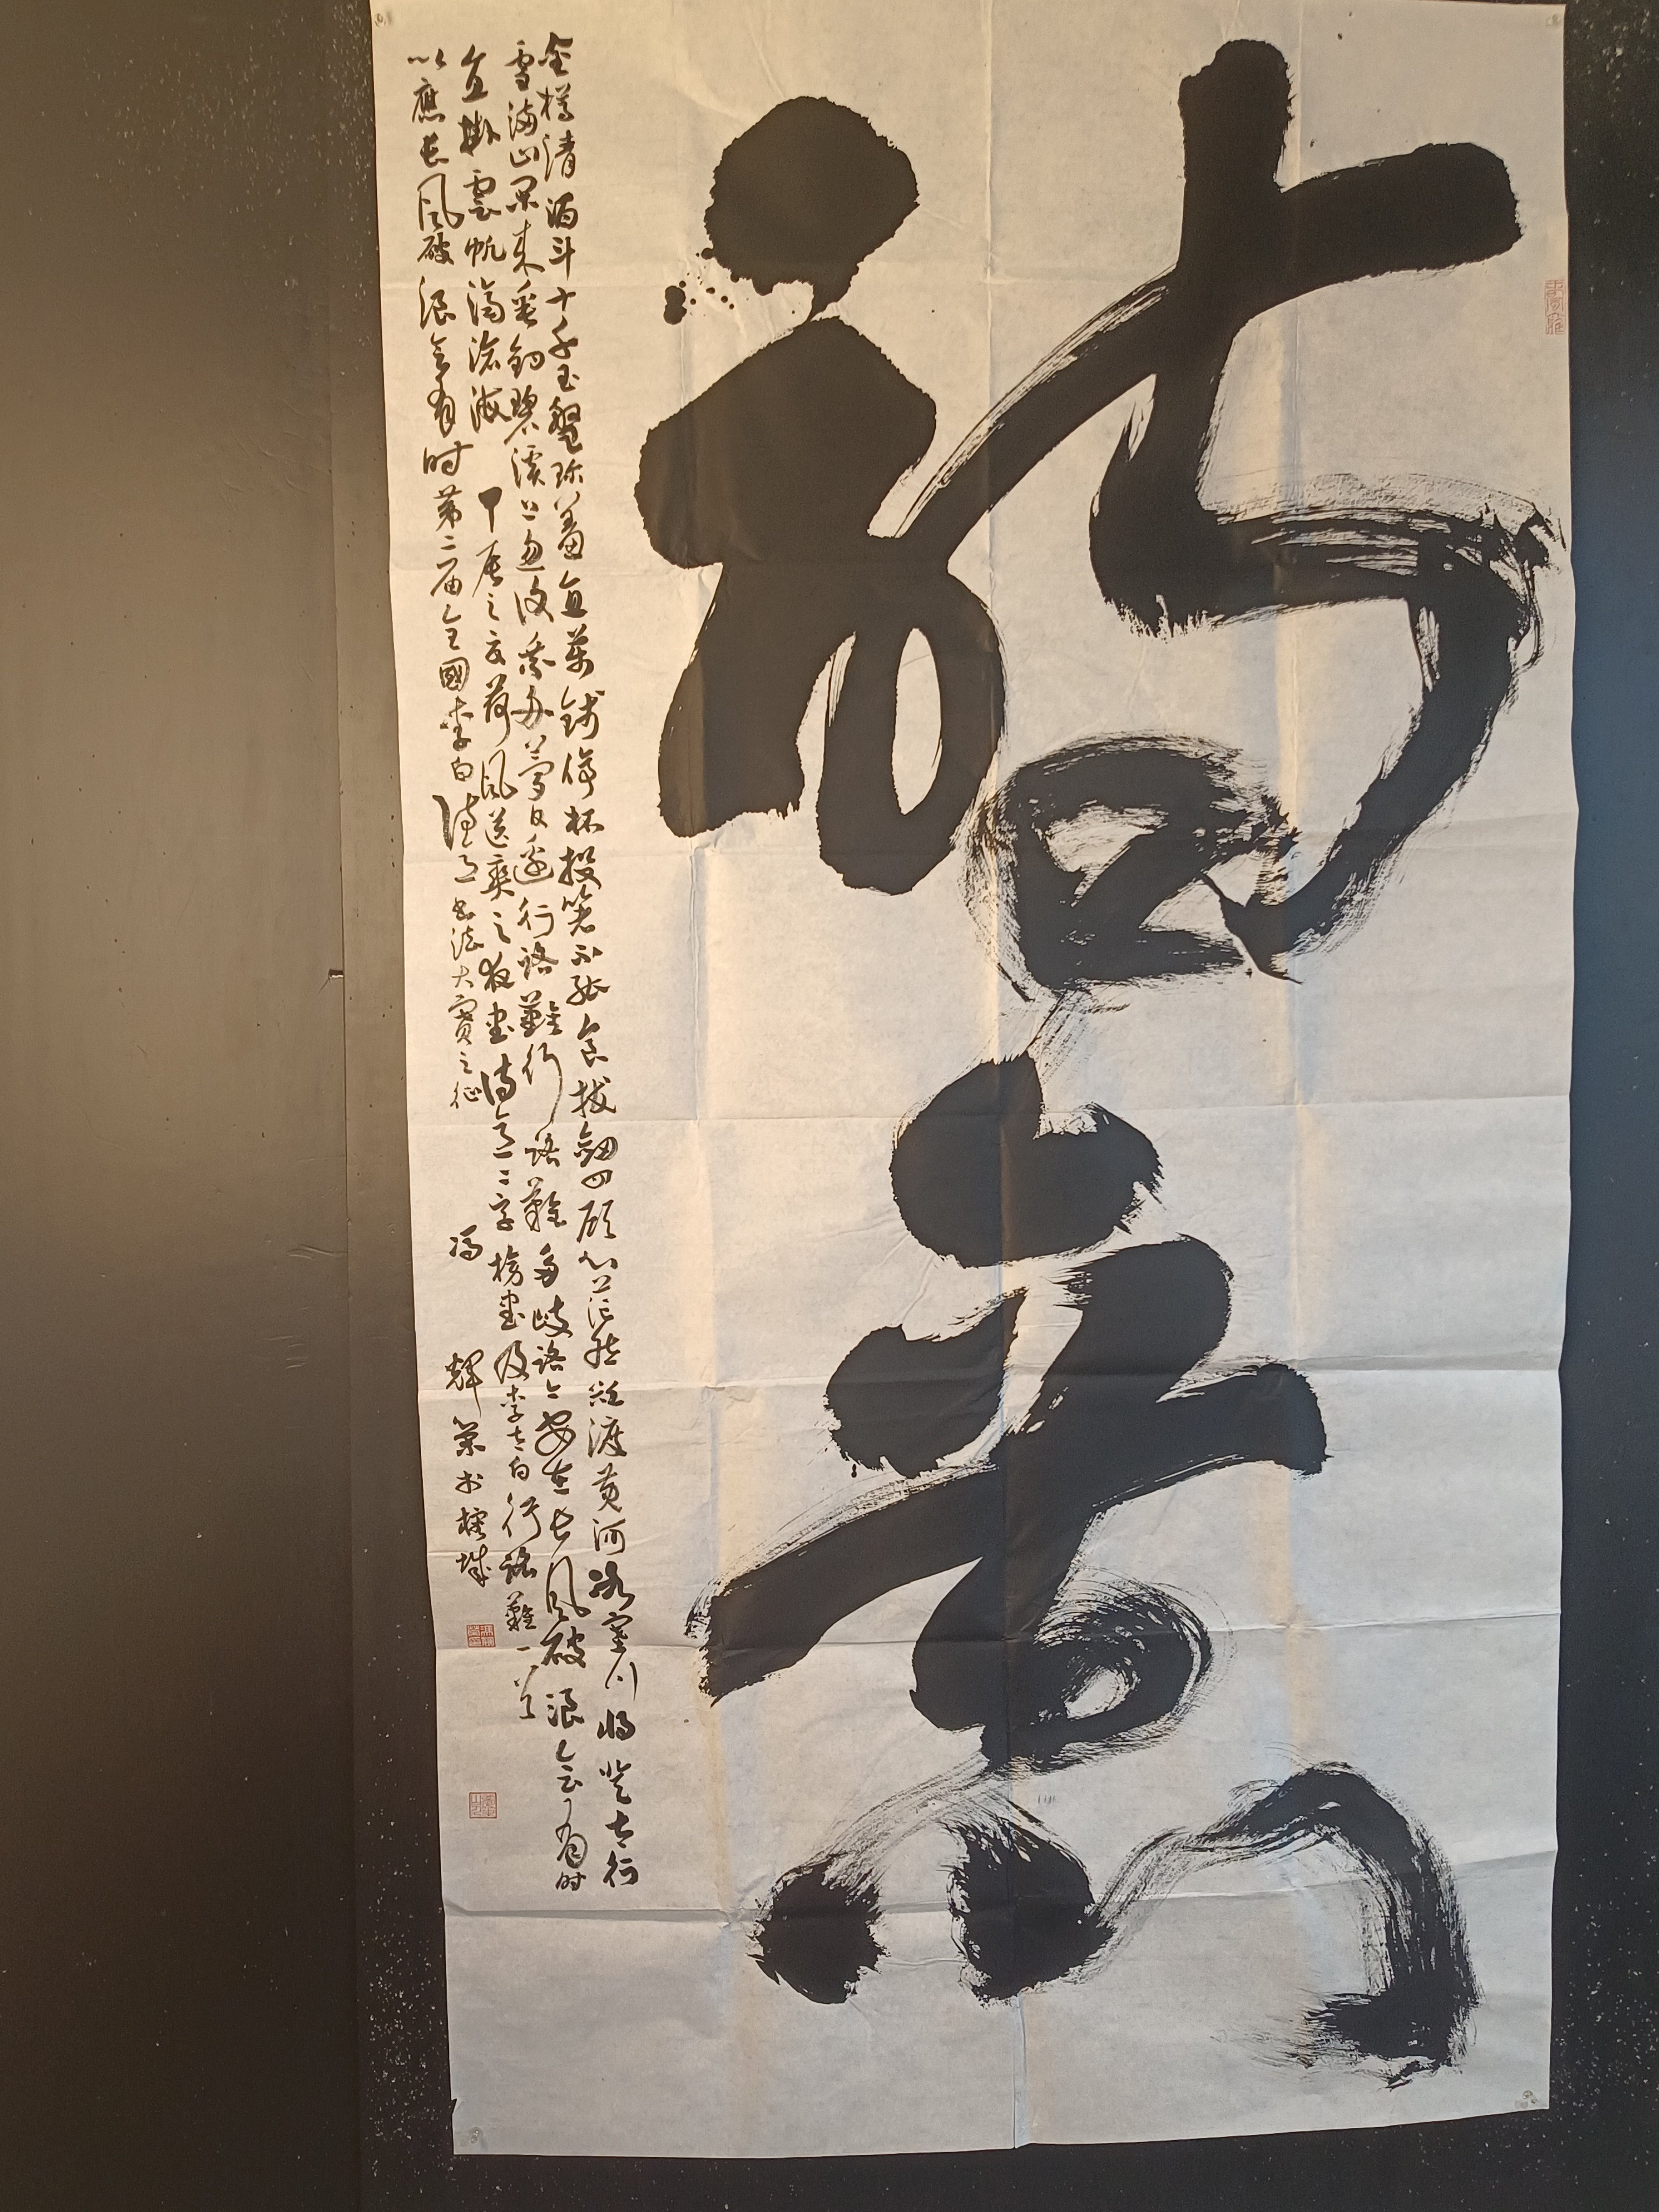 金樽清酒斗十千玉盤珎羞直萬錢停杯投箸不能食拔劍四顧心茫然欲渡黄河冰塞川將登太行
雪滿山閑來垂釣碧溪上忽復乘舟夢日邊行路難行路難多歧路今安在長風破浪會有时
直掛雲帆濟滄海 甲辰之夏荷風送爽之夜書二字榜書及李太白行路難一首
以應長風破浪會有时第二届全國李白詩書法大賽之征 馮輝業於榕城